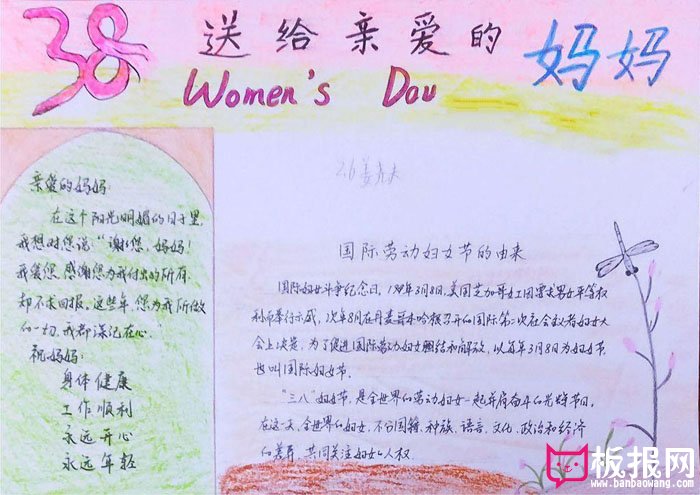 38 送给亲爱的 妈妈
Women's Dau
亲爱的妈妈:
在这个阳光明媚的日子里,
我想对您说:“谢谢您,妈妈!
我爱您,感谢您为我付出的所有
却不求回报,这些年,您为我所做
的一切,我都深记在心.”
祝妈妈:
身体健康
工作顺利
永远开心
永远年轻
国际劳动妇女节的由来
国际妇女斗争纪念日,1909年3月8日,美国芝加哥女工因要求男女平等权
利而举行示威,次年8月在丹麦哥本哈根召开的国际第二次社会主义者妇女大
会上决定,为了促进国际劳动妇女团结和解放,以每年3月8日为妇女节,
也叫国际妇女节.
“三八”妇女节,是全世界的劳动妇女一起并肩奋斗的光辉节日,
在这一天,全世界的妇女,不分国籍,种族,语言,文化,政治和经济
的差异,共同关注妇女人权
板报网
www.banbaowang.com